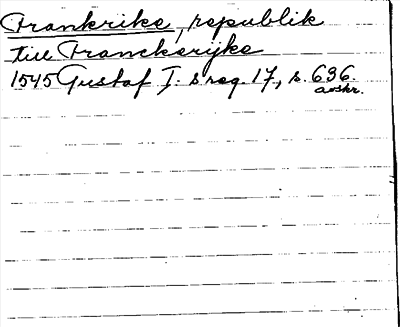 Frankrike, republik
till Franckerijke
1545 Gustaf I. s reg. 17, s. 636.
avskr.